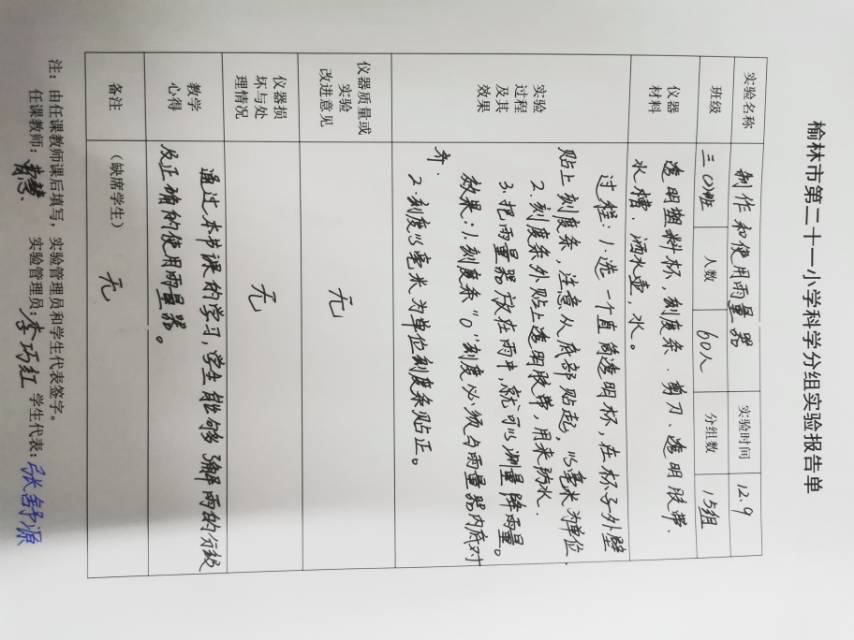 榆林市第二十一小学科学分组实验报告单
实验名称 制作和使用雨量器 实验时间 12.9
班级 三(2)班 人数 60人 分组数 15组
仪器
材料
透明塑料杯,刻度条、剪刀、透明胶带、
水槽、洒水壶,水。
实验
过程
及其
效果
过程:1.选一个直筒透明杯,在杯子外壁
贴上刻度条,注意从底部贴起,以毫米为单位.
2.刻度条外贴上透明胶带,用来防水.
3.把雨量器放在雨中,就可以测量降雨量。
效果:1.刻度条"0"刻度必须与雨量器内底对
齐.
2.刻度以毫米为单位刻度条贴正。
仪器质量或
实验
改进意见
无
仪器损
坏与处
理情况
无
教学
心得
通过本节课的学习,学生能够了解雨的分级
及正确的使用雨量器。
备注
(缺席学生)
无
注:由任课教师课后填写,实验管理员和学生代表签字。
任课教师: 实验管理员:李巧红 学生代表:张舒源